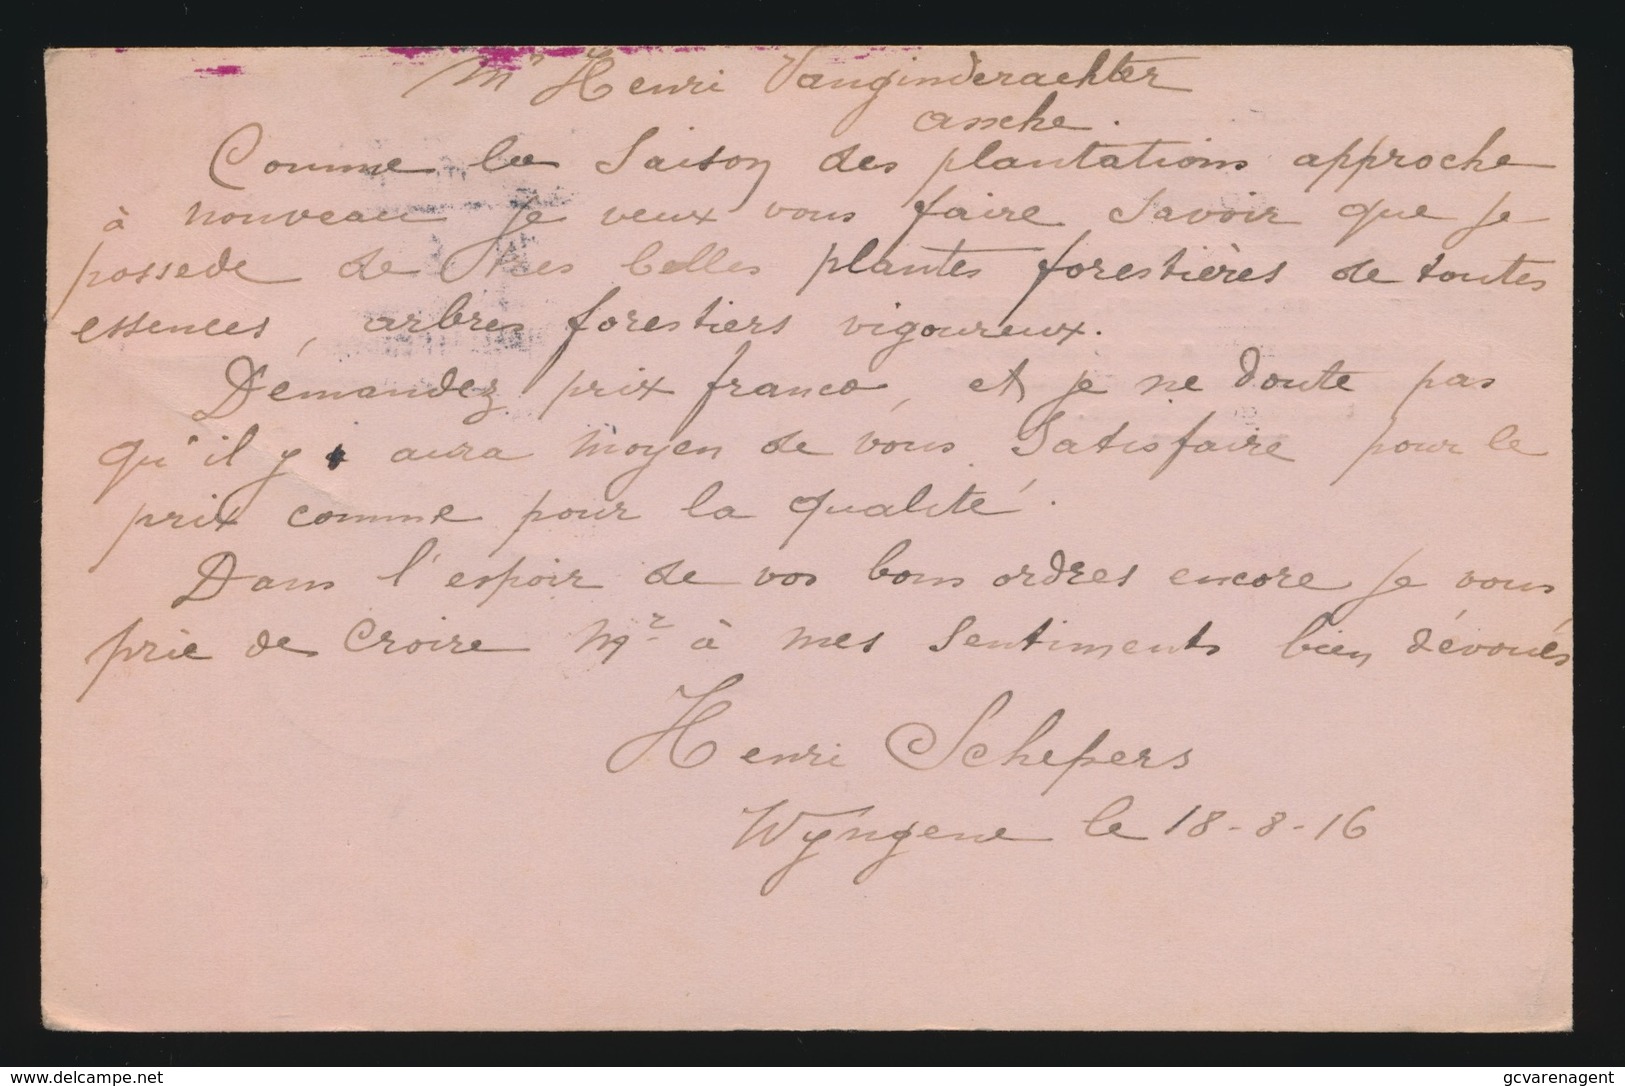 Mr Henri Vanginderachter
Assche.
Comme la Saison des plantations approche
à nouveau je veux vous faire Savoir que je
possede de très belles plantes forestières de toutes
essences, arbres forestiers vigoureux.
Demandez prix franco, et je ne doute pas
qu'il y aura moyen de vous Satisfaire pour le
prix comme pour la qualité.
Dans l'espoir de vos bons ordres encore je vous
prie de Croire Mr à mes Sentiments bien dévoués
Henri Schepers
Wyngene le 18-8-16
delcampe.net
gcvarenagent